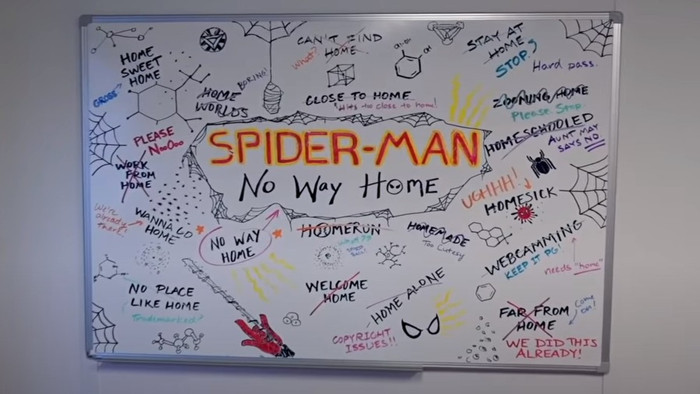 HOME
SWEET
HOME
GROSS
CAN'T FIND
HOME
What?
STAY AT
HOME
STOP
Hard pass.
BORING!
HOME
WORLDS
CLOSE TO HOME
Hits too close to home!
ZOOMING HOME
Please Stop.
PLEASE
NOOOO
SPIDER-MAN
NO WAY HOME
HOMESCHOOLED
AUNT MAY
SAYS NO
WORK
FROM
HOME
UGHHH!
HOMESICK
We're
already
there!
WANNA GO
HOME
NO WAY
HOME
HOOMERUN
What??
HOMEMADE
Too Cutesy
WEBCAMMING
KEEP IT PG
needs "home"
NO PLACE
LIKE HOME
Trademarked!
WELCOME
HOME
HOME ALONE
COPYRIGHT
ISSUES!!
FAR FROM
HOME
Come
on!
WE DID THIS
ALREADY!